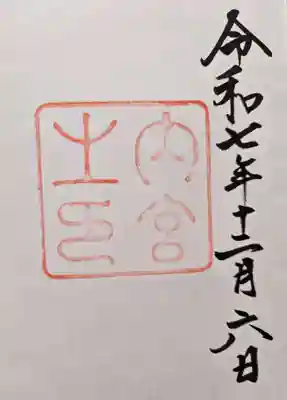 令和七年十二月六日
内宮
之印